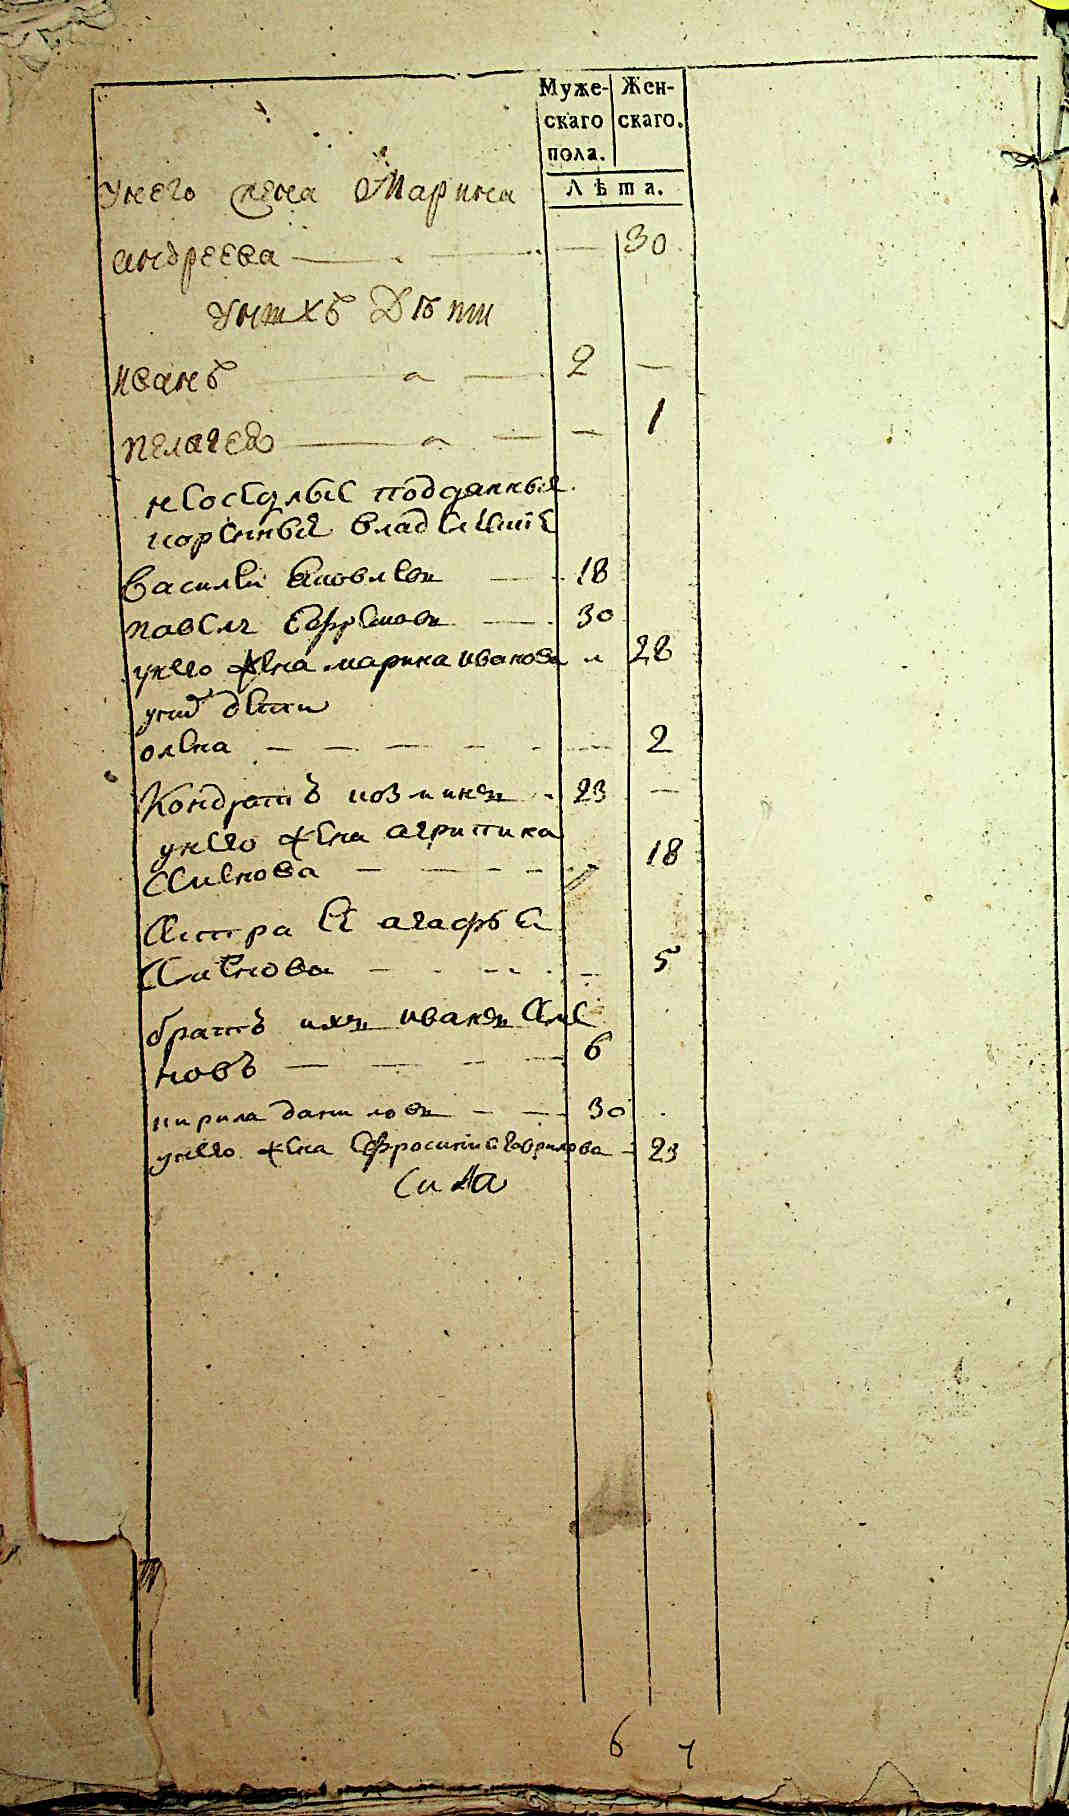 Муже- Жен-
скаго скаго.
пола.
Лѣта.
унего жена Марина
андреева — — 30
унихъ Дѣти
иванъ — 2 —
пелагея — — 1
несослые подданныя
черкесы владения
василеи яковлевъ — 18
павелъ Ефремовъ — 30
унего жена марина иванова 28
уних дети
олена — — — — 2
Кондратъ козминъ 23 —
унего жена агрипина
Семенова — — — 18
Сестра Ея агафья
Семенова — — 5
братъ ихъ иванъ Семе
новъ — — — — 6
кирила даниловъ — — 30
унего жена Ефросинья гаврилова — 23
6 7